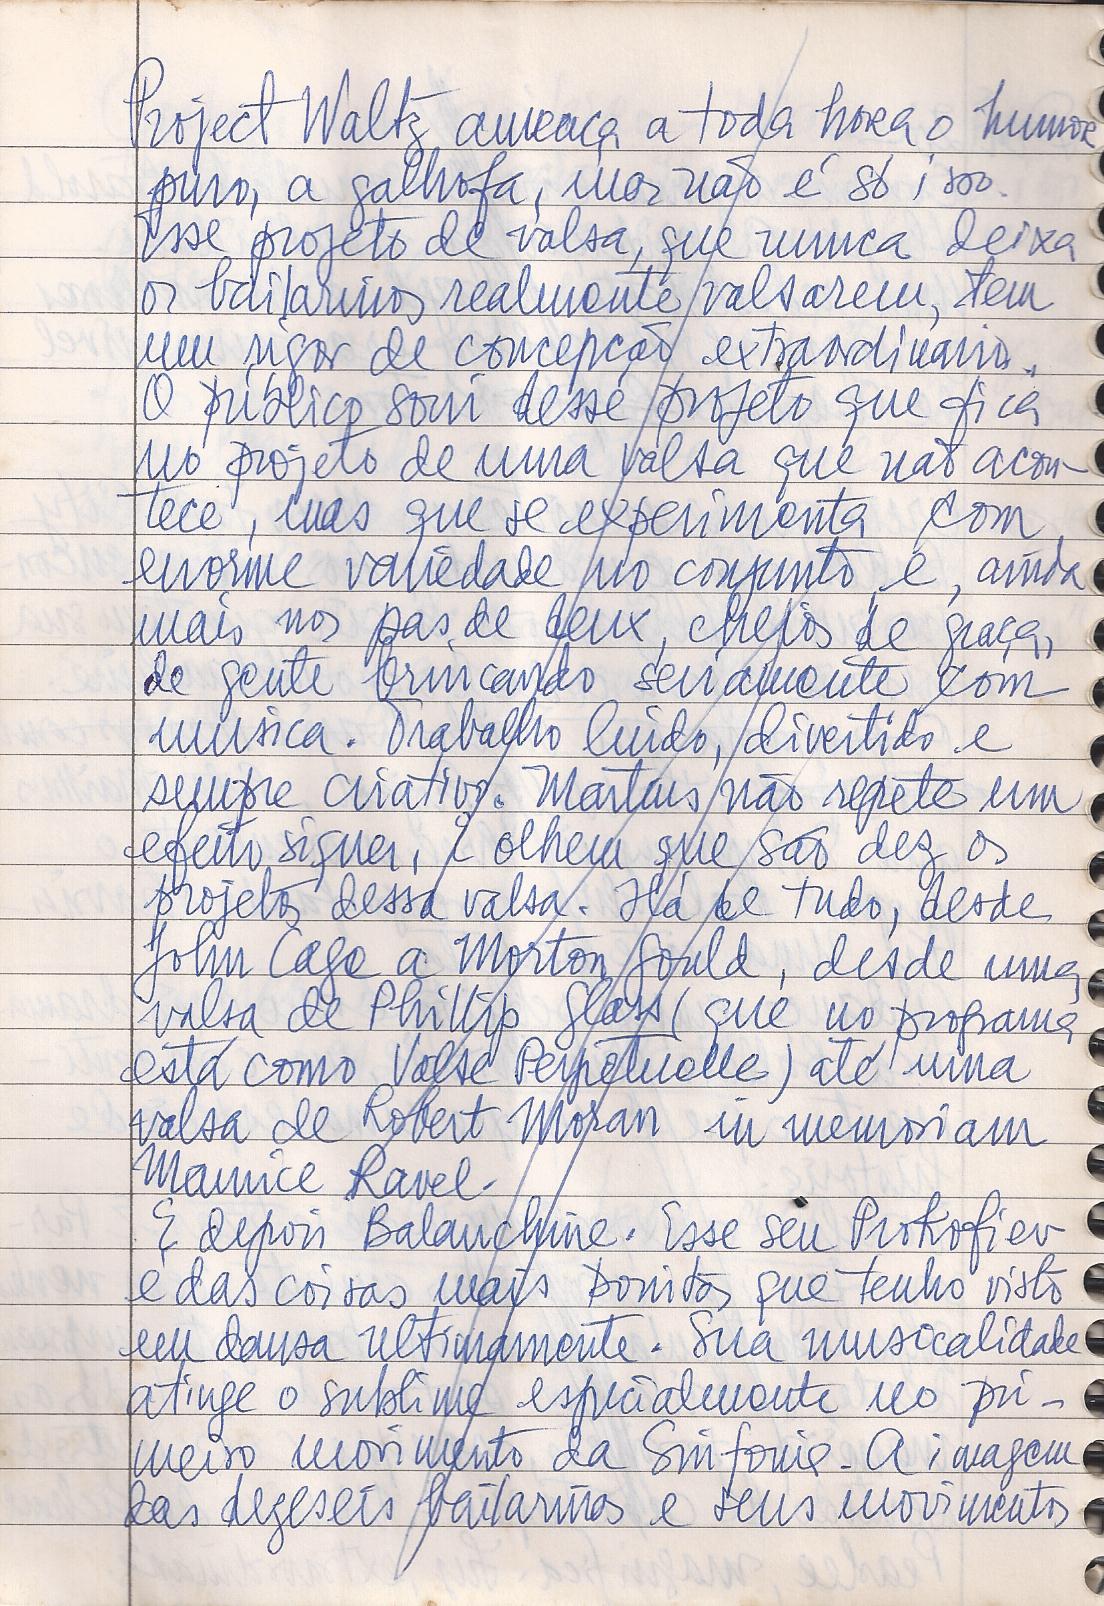 Project Waltz ameaça a toda hora o humor
puro, a galhofa, mas não é só isso.
Esse projeto de valsa, que nunca deixa
os bailarinos realmente valsarem, tem
um rigor de concepção extraordinário.
O público sorri desse projeto que fica
no projeto de uma valsa que não acon-
tece, mas que se experimenta com
enorme variedade no conjunto e, ainda
mais nos pas de deux, cheios de graça,
de gente brincando seriamente com
música. Trabalho lindo, divertido e
sempre criativo. Martins não repete um
efeito siquer, e olhem que são dez os
projetos dessa valsa. Há de tudo, desde
John Cage a Morton Gould, desde uma
valsa de Phillip Glass (que no programa
está como Valse Perpetuelle) até uma
valsa de Robert Moran in memoriam
Maurice Ravel.
E depois Balanchine. Esse seu Prokofiev
é das coisas mais bonitas que tenho visto
em dansa ultimamente. Sua musicalidade
atinge o sublime especialmente no pri-
meiro movimento da Sinfonia. A imagem
das dezeseis bailarinas e seus movimentos